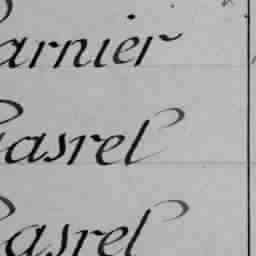 arnier
asrel
asrel